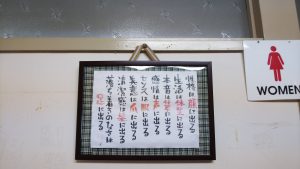 性格は顔に出る
生活は体型に出る
本音は仕草に出る
感情は声に出る
センスは服に出る
美意識は爪に出る
清潔感は髪に出る
落ち着きのなさは
足に出る
WOMEN